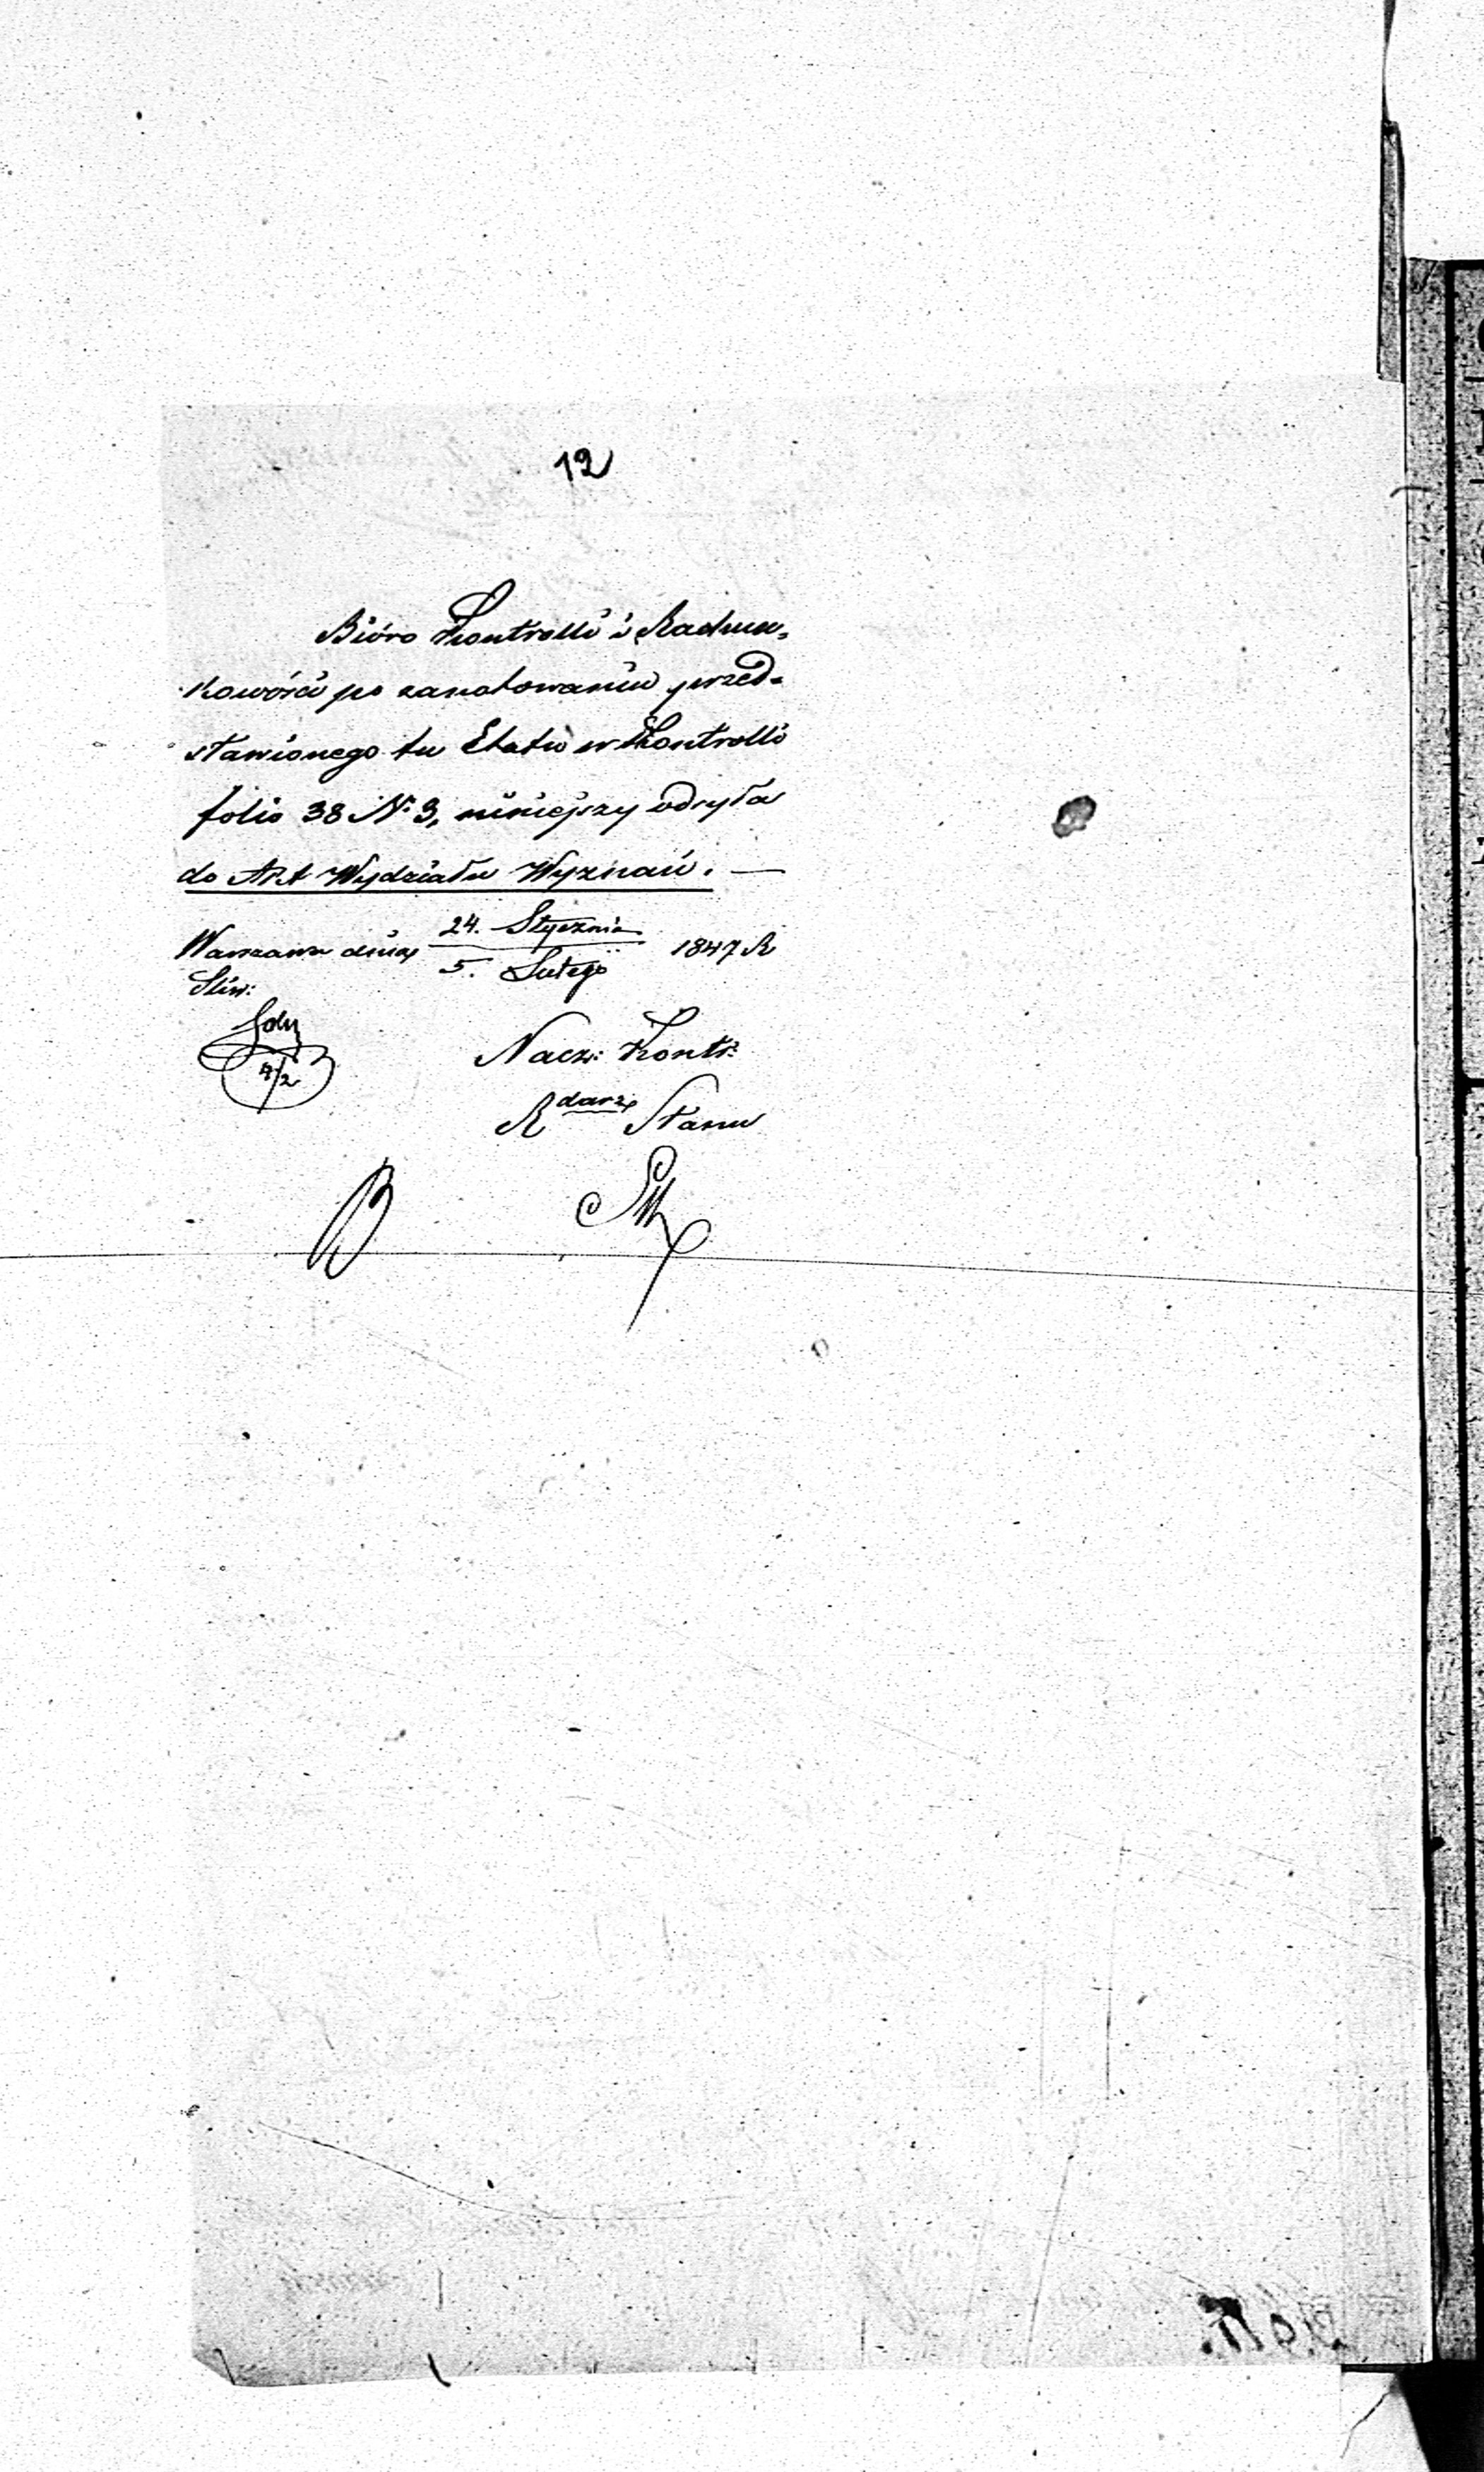 12
Bióro Kontrolli i Rachun-
kowości po zanotowaniu przed-
stawionego tu Etatu w Kontrolli
folio 38 N: 3, niniejszy odsyła
do Akt Wydziału Wyznań. —
Warszawa dnia 24. Stycznia / 5. Lutego 1847 R
Nacz: Kontr:
R darz Stanu